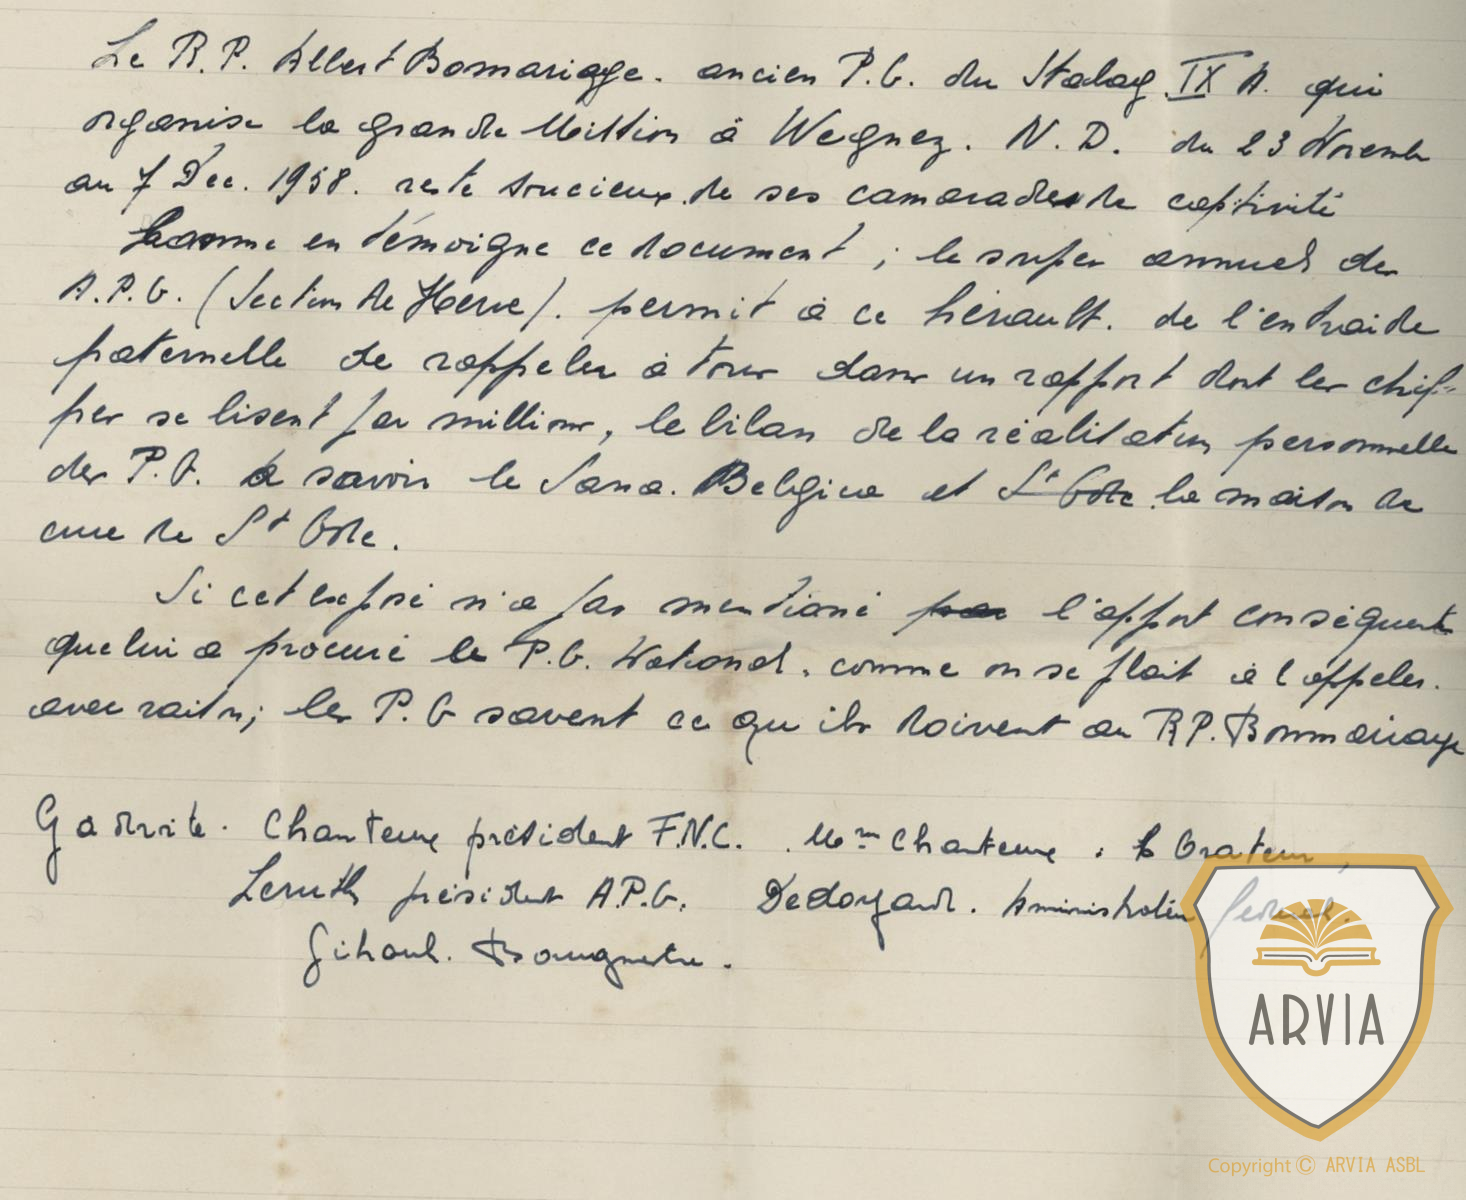 Le R.P. Albert Bomariage. ancien P.G. du Stalag IX A. qui
organise la grande Mission à Wegnez. N.D. du 23 Novemb
au 7 Dec. 1958. reste soucieux de ses camarades de captivité
Comme en témoigne ce document ; le souper annuel des
A.P.G. (Section de Herve). permit à ce hérault. de l'entraide
paternelle de rappeler à tous dans un rapport dont les chif-
fres se lisent par millions, le bilan de la réalisation personnelle
des P.G. à savoir le Sana. Belgica et St Ode la maison de
cure de St Ode.
Si cet exposé n'a pas mentioné par l'apport conséquent
que lui a procuré le P.G. National. comme on se plait à l'appeler.
avec raison; les P.G savent ce qu ils doivent au RP. Bommariage
G à droite. Chanteux président F.N.C. . Mme Chanteux . L Orateur,
Leruth président A.P.G. Dedoyard. Aministrateur
Gihoul. Bougnette.
ARVIA
Copyright © ARVIA ASBL